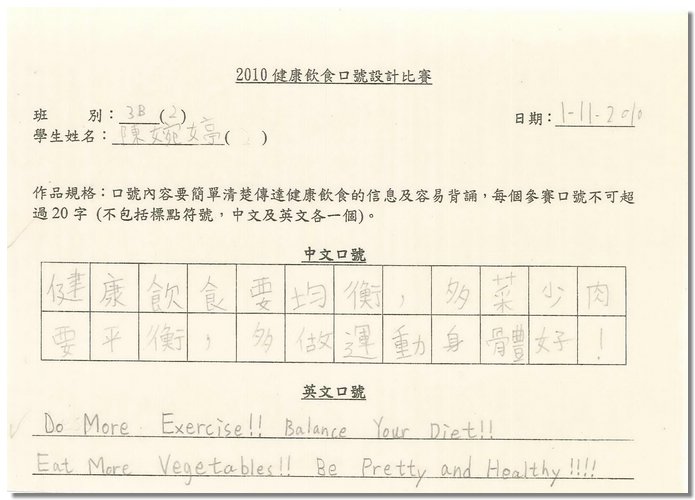 2010 健康飲食口號設計比賽
班 別：3B (2) 日期：1-11-2010
學生姓名：陳婉婷( )
作品規格：口號內容要簡單清楚傳達健康飲食的信息及容易背誦，每個參賽口號不可超
過 20 字 (不包括標點符號，中文及英文各一個)。
中文口號
健康飲食要均衡，多菜少肉
要平衡，多做運動身體好！
英文口號
Do More Exercise!! Balance Your Diet!!
Eat More Vegetables!! Be Pretty and Healthy!!!!